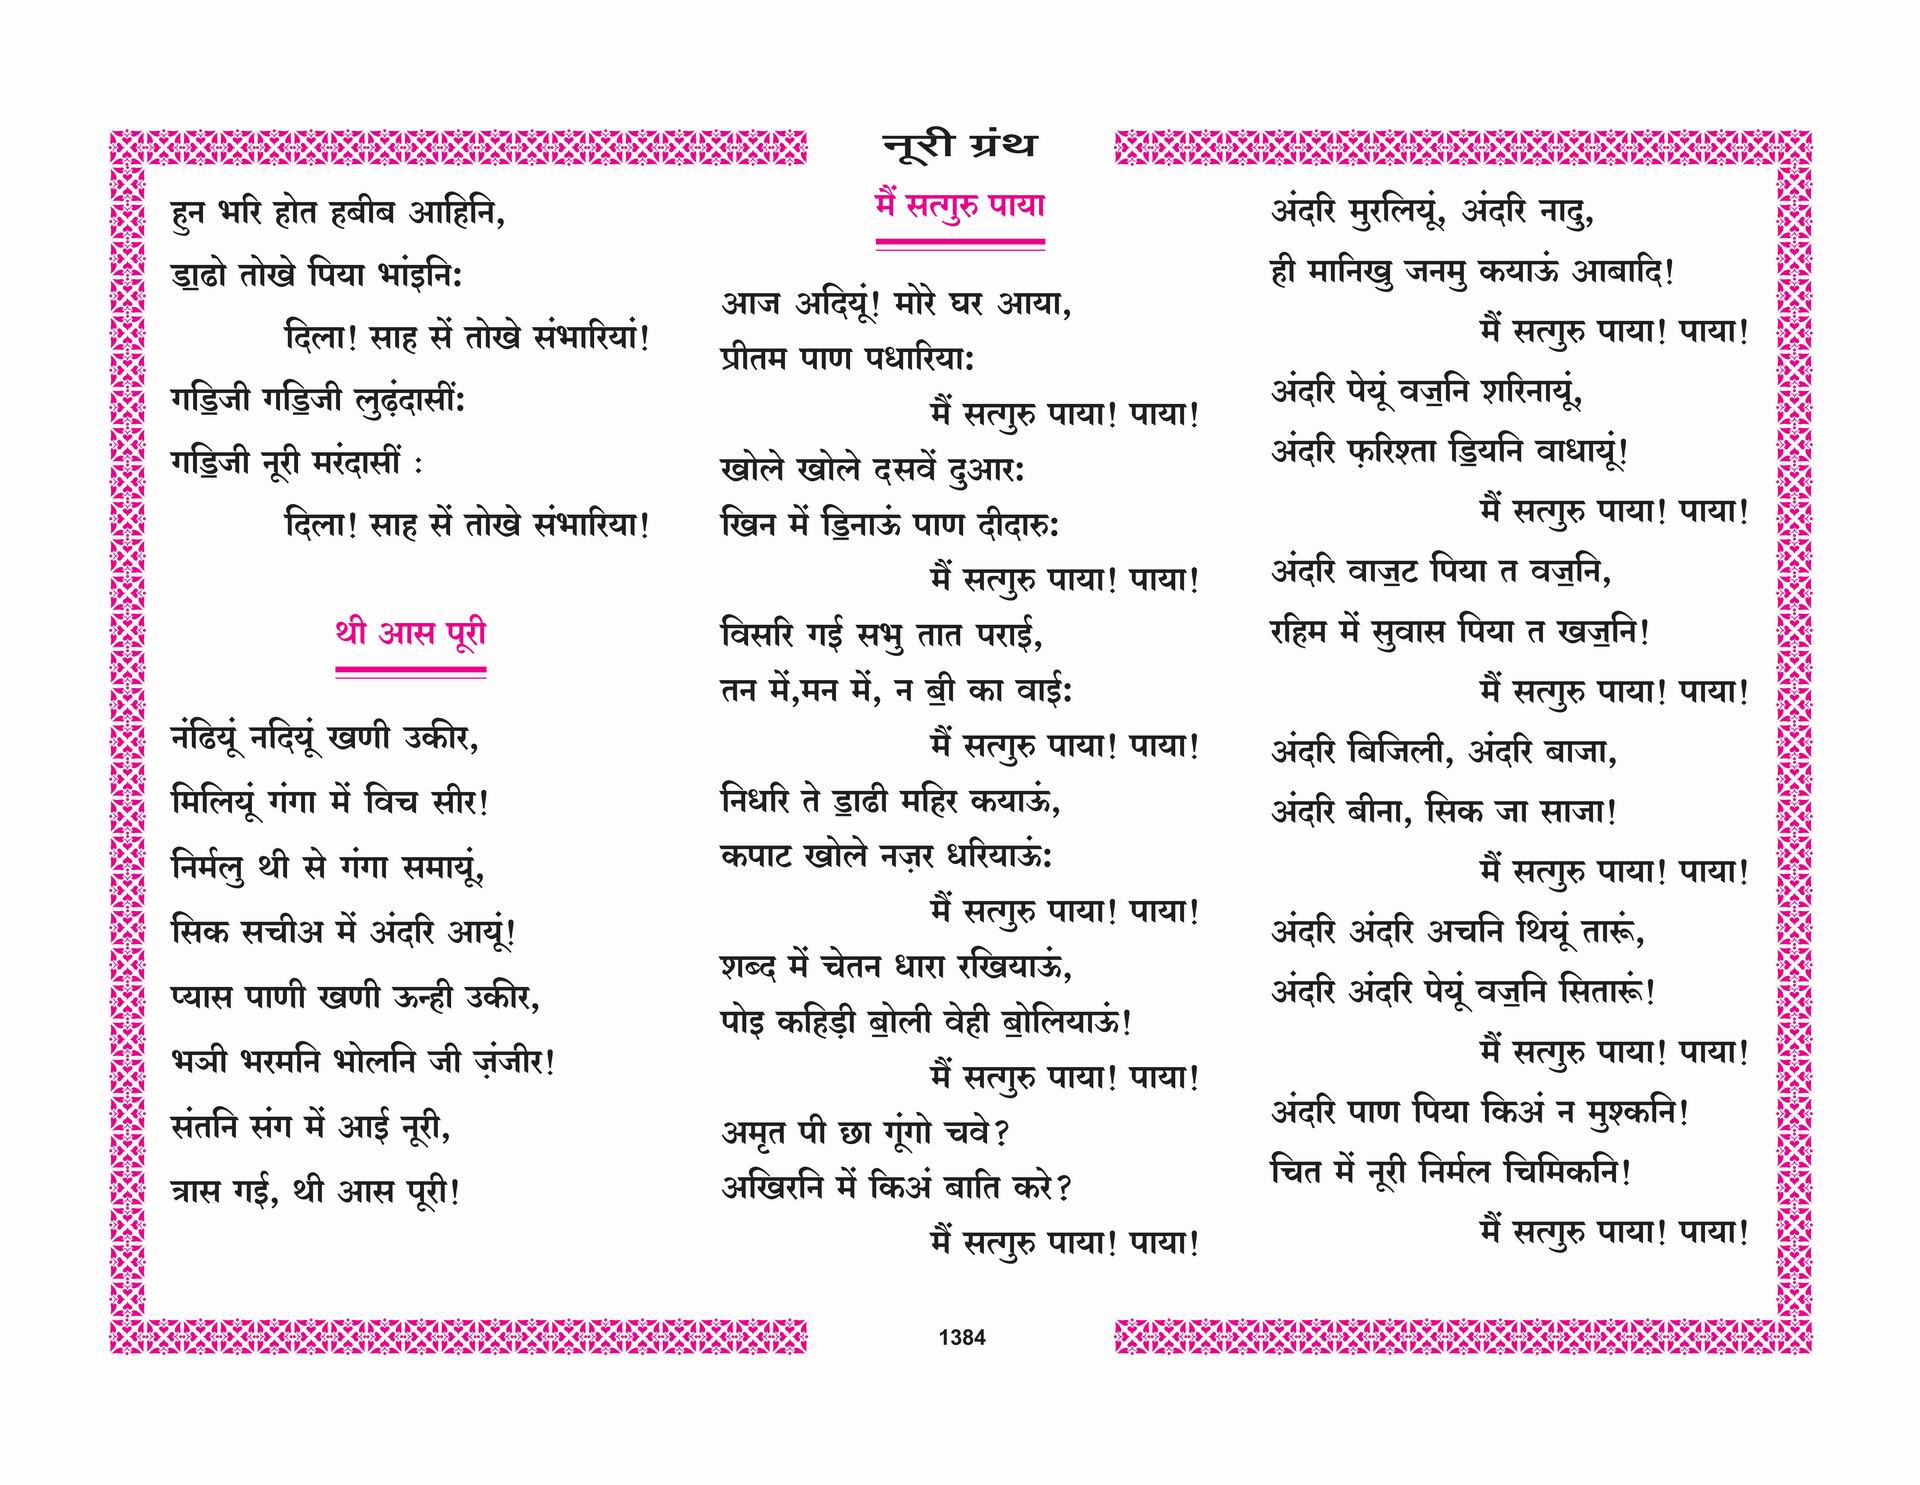 नूरी ग्रंथ
हुन भरि होत हबीब आहिनि,
डा॒ढो तोखे पिया भांइनि:
दिला! साह सें तोखे संभारियां!
गडि॒जी गडि॒जी लुढ़ंदासीं:
गडि॒जी नूरी मरंदासीं :
दिला! साह सें तोखे संभारिया!
थी आस पूरी
नंढियूं नदियूं खणी उकीर,
मिलियूं गंगा में विच सीर!
निर्मलु थी से गंगा समायूं,
सिक सचीअ में अंदरि आयूं!
प्यास पाणी खणी ऊन्ही उकीर,
भञी भरमनि भोलनि जी ज़ंजीर!
संतनि संग में आई नूरी,
त्रास गई, थी आस पूरी!
मैं सत्गुरु पाया
आज अदियूं! मोरे घर आया,
प्रीतम पाण पधारिया:
मैं सत्गुरु पाया! पाया!
खोले खोले दसवें दुआर:
खिन में डि॒नाऊं पाण दीदारु:
मैं सत्गुरु पाया! पाया!
विसरि गई सभु तात पराई,
तन में,मन में, न बी॒ का वाई:
मैं सत्गुरु पाया! पाया!
निधरि ते डा॒ढी महिर कयाऊं,
कपाट खोले नज़र धरियाऊं:
मैं सत्गुरु पाया! पाया!
शब्द में चेतन धारा रखियाऊं,
पोइ कहिड़ी बो॒ली वेही बो॒लियाऊं!
मैं सत्गुरु पाया! पाया!
अमृत पी छा गूंगो चवे?
अखिरनि में किअं बाति करे?
मैं सत्गुरु पाया! पाया!
अंदरि मुरलियूं, अंदरि नादु,
ही मानिखु जनमु कयाऊं आबादि!
मैं सत्गुरु पाया! पाया!
अंदरि पेयूं वज॒नि शरिनायूं,
अंदरि फ़रिश्ता डि॒यनि वाधायूं!
मैं सत्गुरु पाया! पाया!
अंदरि वाज॒ट पिया त वज॒नि,
रहिम में सुवास पिया त खज॒नि!
मैं सत्गुरु पाया! पाया!
अंदरि बिजिली, अंदरि बाजा,
अंदरि बीना, सिक जा साजा!
मैं सत्गुरु पाया! पाया!
अंदरि अंदरि अचनि थियूं तारूं,
अंदरि अंदरि पेयूं वज॒नि सितारूं!
मैं सत्गुरु पाया! पाया!
अंदरि पाण पिया किअं न मुश्कनि!
चित में नूरी निर्मल चिमिकनि!
मैं सत्गुरु पाया! पाया!
1384